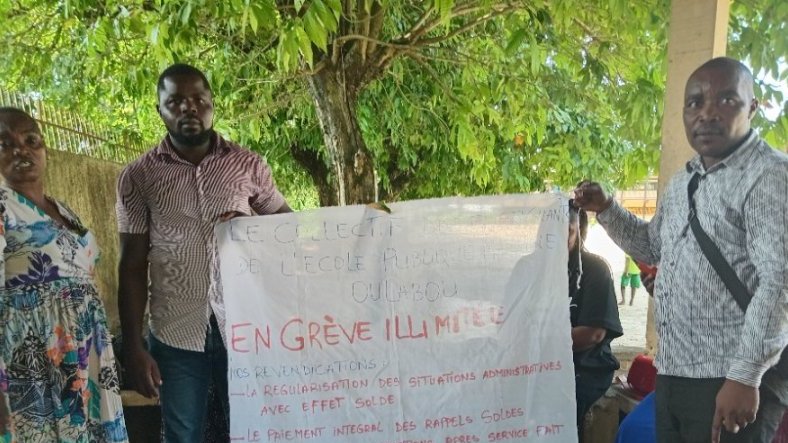 LE COLLECTIF
DE L'ECOLE PUBLIQUE
OULABOU
EN GRÈVE ILLIMITEE
NOS REVENDICATIONS :
- LA REGULARISATION DES SITUATIONS ADMINISTRATIVES
AVEC EFFET SOLDE
- LE PAIEMENT INTEGRAL DES RAPPELS SOLDES
APRES SERVICE FAIT